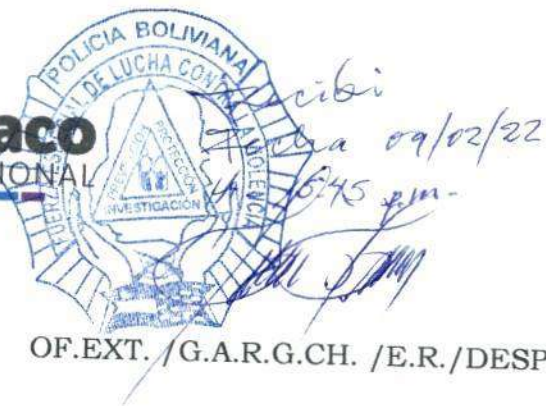 POLICIA BOLIVIANA
FUERZA ESPECIAL DE LUCHA CONTRA LA VIOLENCIA
PREVENCION PROTECCIÓN
INVESTIGACIÓN
aco
IONAL
Recibi
Fecha 09/02/22
5:45 p.m.
OF.EXT. /G.A.R.G.CH. /E.R./DESP